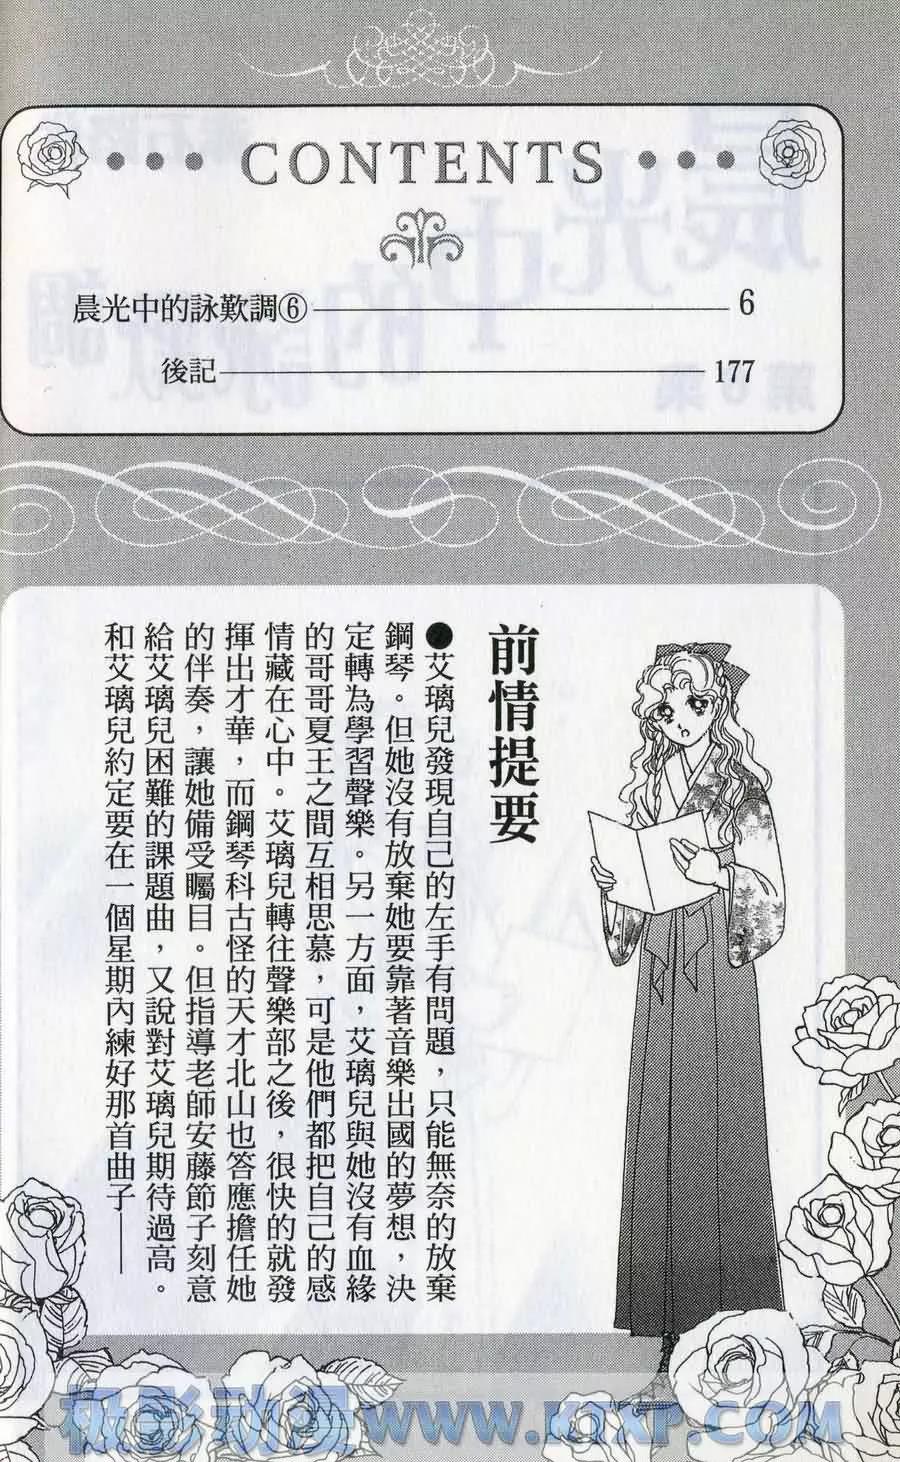 CONTENTS
晨光中的詠歎調⑥ 6
後記 177
前情提要
●艾璃兒發現自己的左手有問題，只能無奈的放棄
鋼琴。但她沒有放棄她要靠著音樂出國的夢想，決
定轉為學習聲樂。另一方面，艾璃兒與她沒有血緣
的哥哥夏王之間互相思慕，可是他們都把自己的感
情藏在心中。艾璃兒轉往聲樂部之後，很快的就發
揮出才華，而鋼琴科古怪的天才北山也答應擔任她
的伴奏，讓她備受矚目。但指導老師安藤節子刻意
給艾璃兒困難的課題曲，又說對艾璃兒期待過高。
和艾璃兒約定要在一個星期內練好那首曲子——
极影动漫www.KTXP.COM